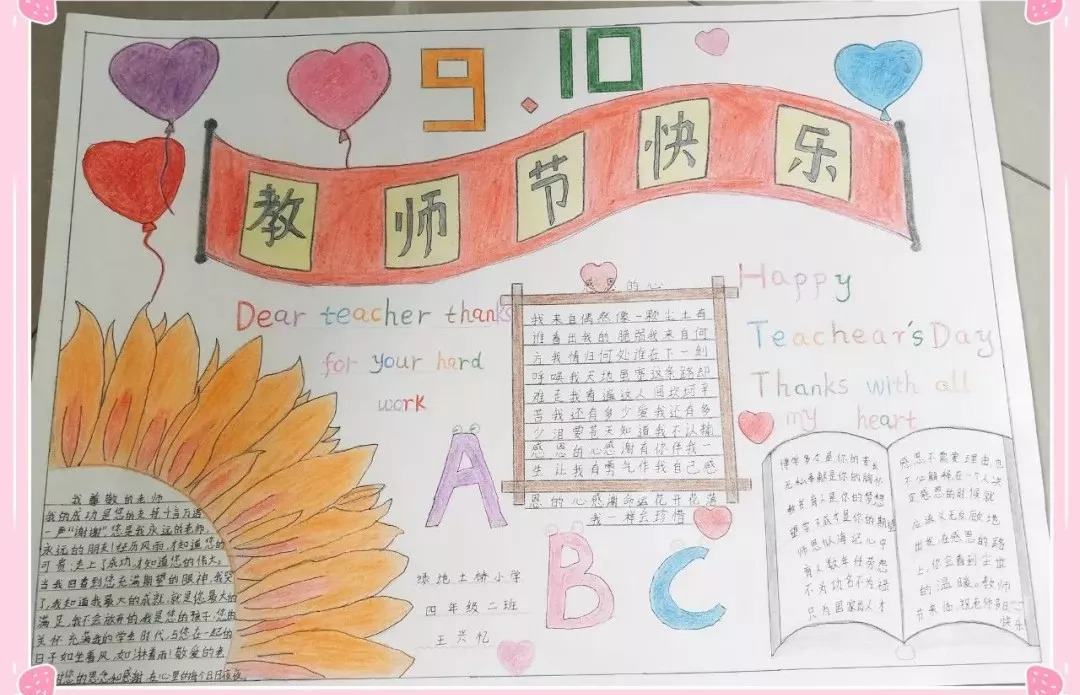 9.10
教师节快乐
Dear teacher thanks
for your hard
work
的心
我来自偶然像一颗尘土有
谁看出我的脆弱我来自何
方我情归何处谁在下一刻
呼唤我天地虽宽这条路却
难走我看遍这人间坎坷辛
苦我还有多少爱我还有多
少泪要苍天知道我不认输
感恩的心感谢有你伴我一
生让我有勇气作我自己感
恩的心感谢命运花开花落
我一样会珍惜
Happy
Teachear's Day
Thanks with all
my heart
A
B
C
我尊敬的老师
我的成功是您的
一声"谢谢"您是我永远的老师,
永远的朋友!经历风雨,才知道您的
可贵,走上了成功,才知道您的伟大。
当我回看到您充满期望的眼神,我
了,我知道我最大的成就,就是你最大的
满足,我不会放弃的,我是您的孩子!您的
关怀,充满我的学生时代,与您在一起的
日子如坐春风,如
绿地土桥小学
四年级二班
王兴忆
无私奉献是你的
教书育人是你的梦想
望子成才是你的期望
师恩似海记心中
育人数年任劳怨
不为功名不为禄
只为国家育人才
感恩不需要理由,也
不必解释在一个人决
定感恩的时候就
应该义无反顾地
出发,在感恩的路
上,你会看到尘世
的温暖。教师
节来临,祝老师节日
快乐